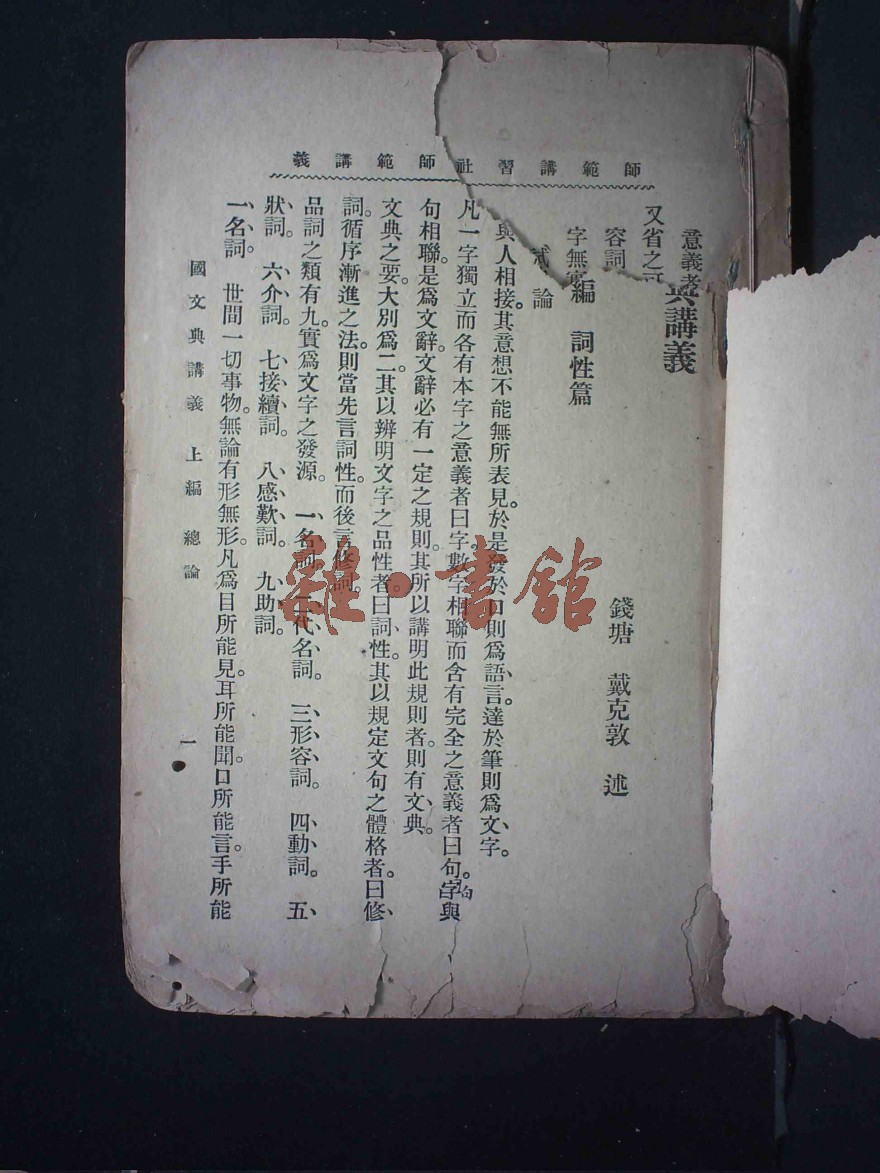 師範講習社師範講義
意義者
典講義
又省之
容詞
錢塘 戴克敦 述
字無
編 詞性篇
論
與人相接。其意想不能無所表見。於是發於口則爲語言。達於筆則爲文字。
凡一字獨立而各有本字之意義者曰字。數字相聯而含有完全之意義者曰句。字與
句
句相聯。是爲文辭。文辭必有一定之規則。其所以講明此規則者。則有文典。
文典之要。大別爲二。其以辨明文字之品性者。曰詞性。其以規定文句之體格者。曰修
詞。循序漸進之法。則當先言詞性。而後言修詞。
品詞之類有九。實爲文字之發源。 一名詞。 二代名詞。 三形容詞。 四動詞。 五
狀詞。 六介詞。 七接續詞。 八感歎詞。 九助詞。
一、名詞。 世間一切事物。無論有形無形。凡爲目所能見。耳所能聞。口所能言。手所能
國文典講義 上編 總論
一
雜·書館